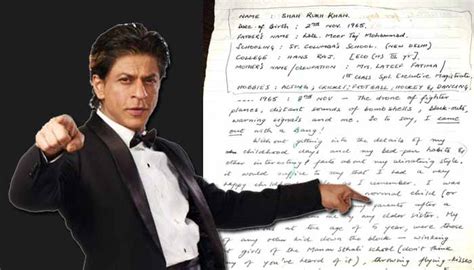 NAME : SHAH RUKH KHAN.
DATE OF BIRTH : 2ND NOV. 1965.
FATHER'S NAME : Late. MEER TAJ MOHAMMED.
SCHOOLING : ST. COLUMBA'S SCHOOL. (NEW DELHI)
COLLEGE : HANS RAJ. [ECO (H) III yr].
MOTHER'S NAME/OCCUPATION : MRS. LATEEF FATIMA/
1ST CLASS Spl. Executive Magistrate.
HOBBIES : ACTING, CRICKET, FOOTBALL, HOCKEY & DANCING.
1965 : 2ND NOV — The drone of fighter
planes, distant sounds of bomb shells, black-outs,
warning signals and me. So to say, I came
out with a Bang!
Without getting into the details of my
childhood days and my bed-pan habits
other interesting facts about my urinating style,
it would suffice to say that I had a very
happy childhood I remember. I was
normal child (or
parents after a
any elder sister. My
at the age of 5 years, were those
of any other kid down the block — winking
at girls of the Manav Sthali School (don't think
you've heard of it), throwing flying-kisses